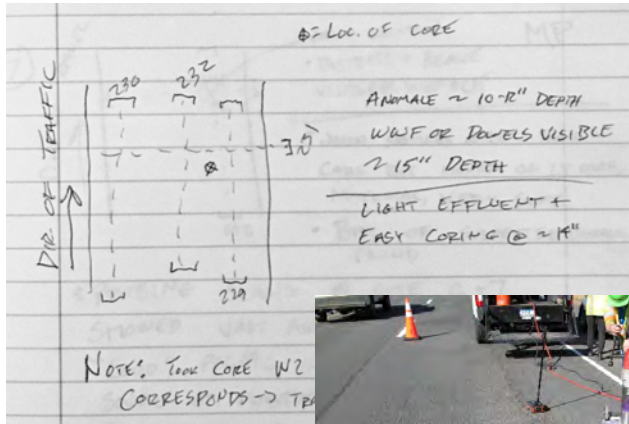 = LOC. OF CORE
230
232
DIR. OF TRAFFIC
ANOMALE ~ 10-12" DEPTH
WWF OR DOWELS VISIBLE
~ 15" DEPTH
LIGHT EFFLUENT +
EASY CORING @ ~ 14"
229
NOTE: TOOK CORE W2
CORRESPONDS ->